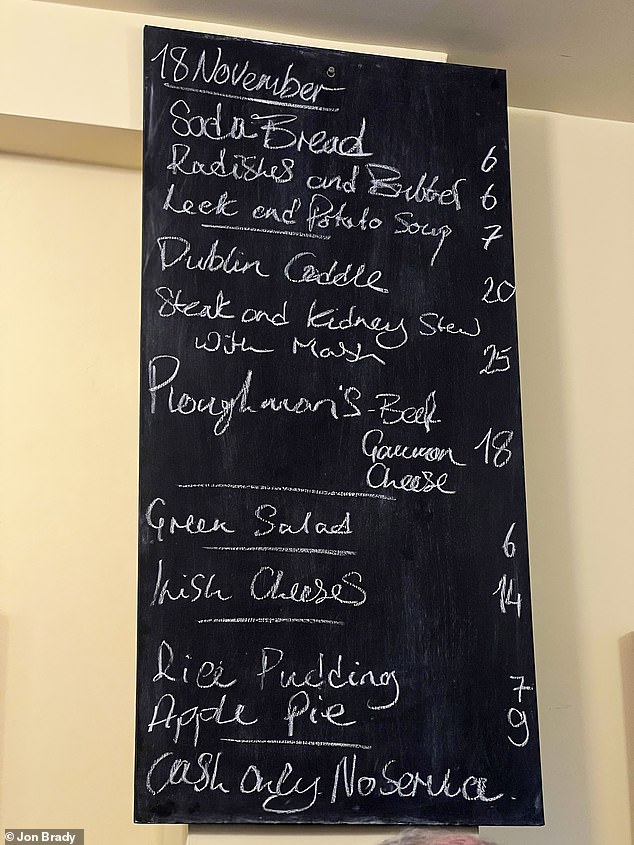 18 November
Soda Bread 6
Radishes and Butter 6
Leek and Potato Soup 7
Dublin Coddle 20
Steak and Kidney Stew
with Mash 25
Ploughman's - Beef
Gammon 18
Cheese
Green Salad 6
Irish Cheeses 14
Rice Pudding 7
Apple Pie 9
Cash only. No Service.
© Jon Brady